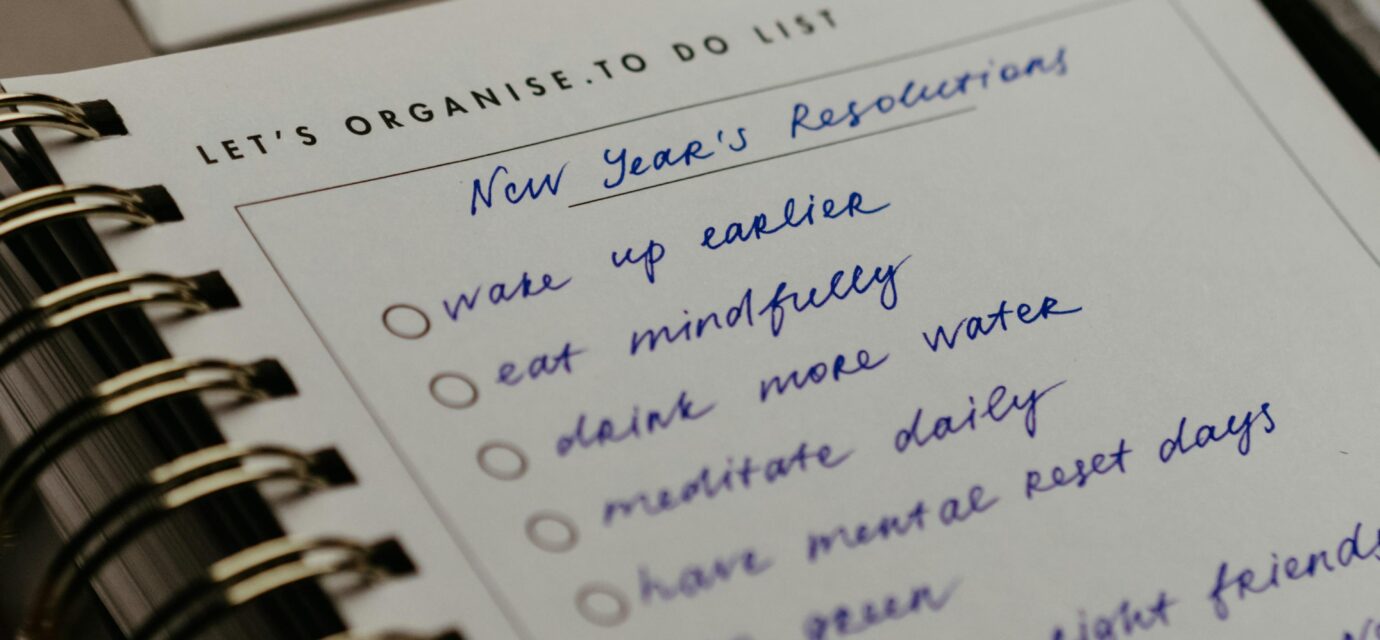 LET'S ORGANISE.TO DO LIST
New Year's Resolutions
wake up earlier
eat mindfully
drink more water
meditate daily
have mental reset days
green
friends